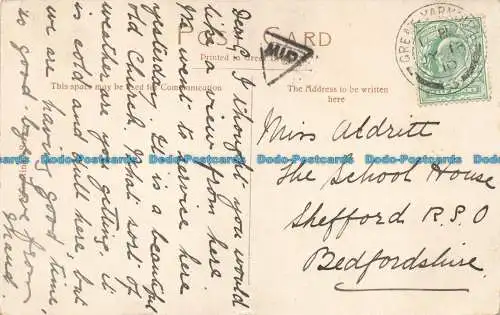 POST CARD
Printed in
This space may be used for Communication
The Address to be written
here
GREAT YARMOUTH
Dear G I thought you would
like a view from here.
We went to service here
yesterday. It is a beautiful
old Church. What sort of
weather are you getting. it
is cold and dull here, but
we are having good time,
so good bye love from
Maud.
Miss Aldritt
The School House
Shefford R.S.O
Bedfordshire.
Delta-Postcards Delta-Postcards Delta-Postcards